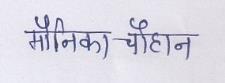 मौनिका चौहान